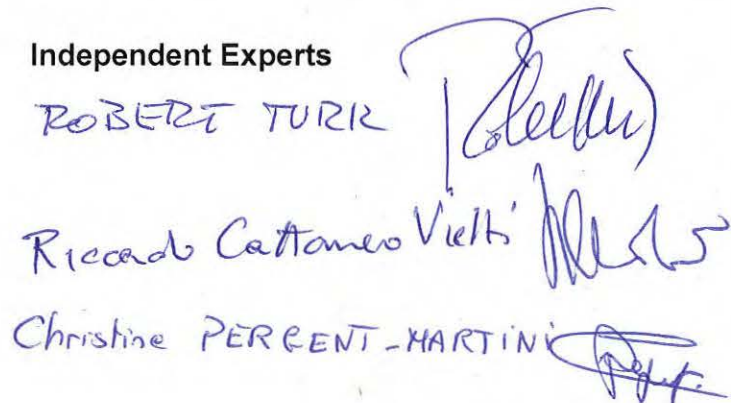 Independent Experts
ROBERT TURK
Riccardo Cattaneo Vietti
Christine PERGENT-MARTINI